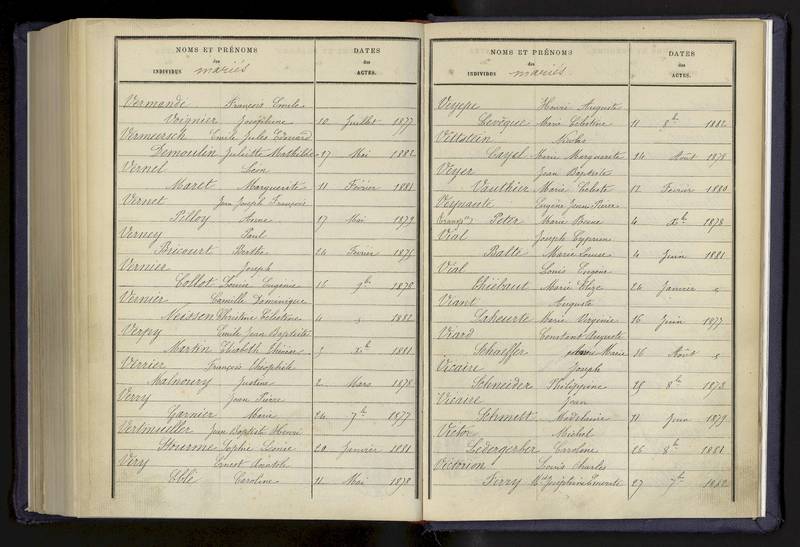 NOMS ET PRÉNOMS
des
INDIVIDUS mariés
DATES
des
ACTES.
Vermande François Emile
Voignier Joséphine 10 Juillet 1877
Vermeersch Emile Jules Edouard
Demoulin Juliette Mathilde 27 Mai 1882
Vernel Léon
Maret Marguerite 11 Février 1881
Vernet Jean Joseph François
Pilloy Anne 17 Mai 1879
Verney Paul
Bricourt Berthe 24 Février 1875
Vernier Joseph
Collot Louise Eugénie 16 9bre 1878
Vernier Camille Dominique
Noisson Christine Célestine 4 " 1882
Verpy Emile Jean Baptiste
Martin Elisabeth Thérèse 3 Xbre 1881
Verrier François Théophile
Malnoury Justine 2 Mars 1878
Verry Jean Pierre
Garnier Marie 24 7bre 1877
Vertmuëller Jean Baptiste Henri
Stourme Sophie Léonie 20 Janvier 1881
Véry Ernest Anatole
Eblé Caroline 14 Mai 1878
NOMS ET PRÉNOMS
des
INDIVIDUS mariés
DATES
des
ACTES.
Veyppe Henri Auguste
Levêque Marie Célestine 11 8bre 1882
Vettstein Nicolas
Cayel Marie Marguerite 24 Août 1878
Veyer Jean Baptiste
Vauthier Marie Céleste 12 Février 1880
Eugène Jean Pierre
Peter Marie 4 Xbre 1878
Vial Joseph Cyprien
Balte Marie Louise 4 Juin 1881
Vial Louis Eugène
Thiébaut Marie Elize 24 Janvier "
Viant Auguste
Laheurte Marie Virginie 16 Juin 1877
Viard Constant Auguste
Schaiffer Marie 16 Août "
Vicaire Joseph
Schneider Philippine 29 8bre 1873
Vicaire Jean
Schmitt Madeleine 11 Juin 1879
Victor Michel
Ledergerber Caroline 26 8bre 1881
Victorion Louis Charles
Ferry Joséphine 27 7bre 1882